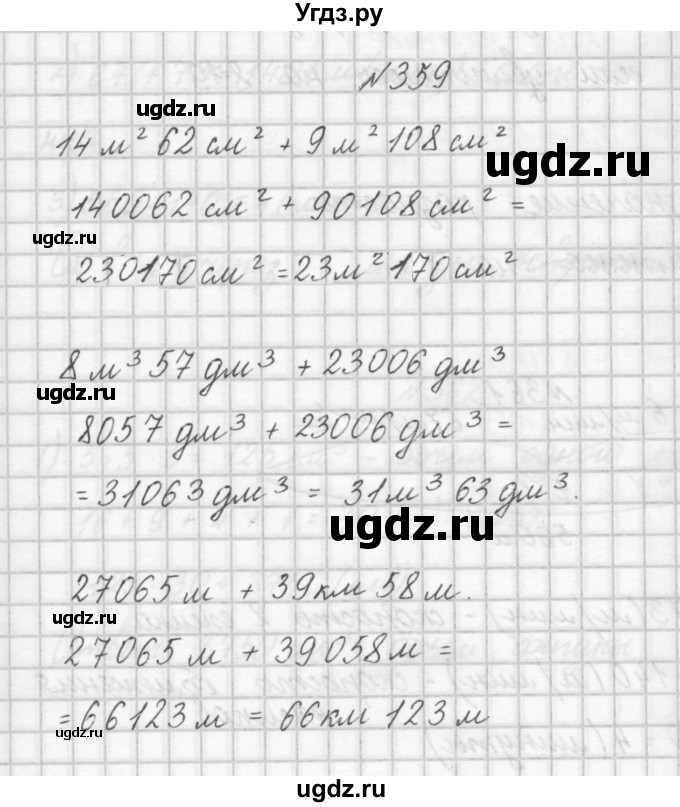 Угдз.ру
№359
ugdz.ru
14 м² 62 см² + 9 м² 108 см²
ugdz.ru
140062 см² + 90108 см² =
ugdz.ru
230170 см² = 23 м² 170 см²
8 м³ 57 дм³ + 23006 дм³
ugdz.ru
8057 дм³ + 23006 дм³ =
= 31063 дм³ = 31 м³ 63 дм³.
ugdz.ru
27065 м + 39 км 58 м.
ugdz.ru
27065 м + 39058 м =
= 66123 м = 66 км 123 м
ugdz.ru
ugdz.ru